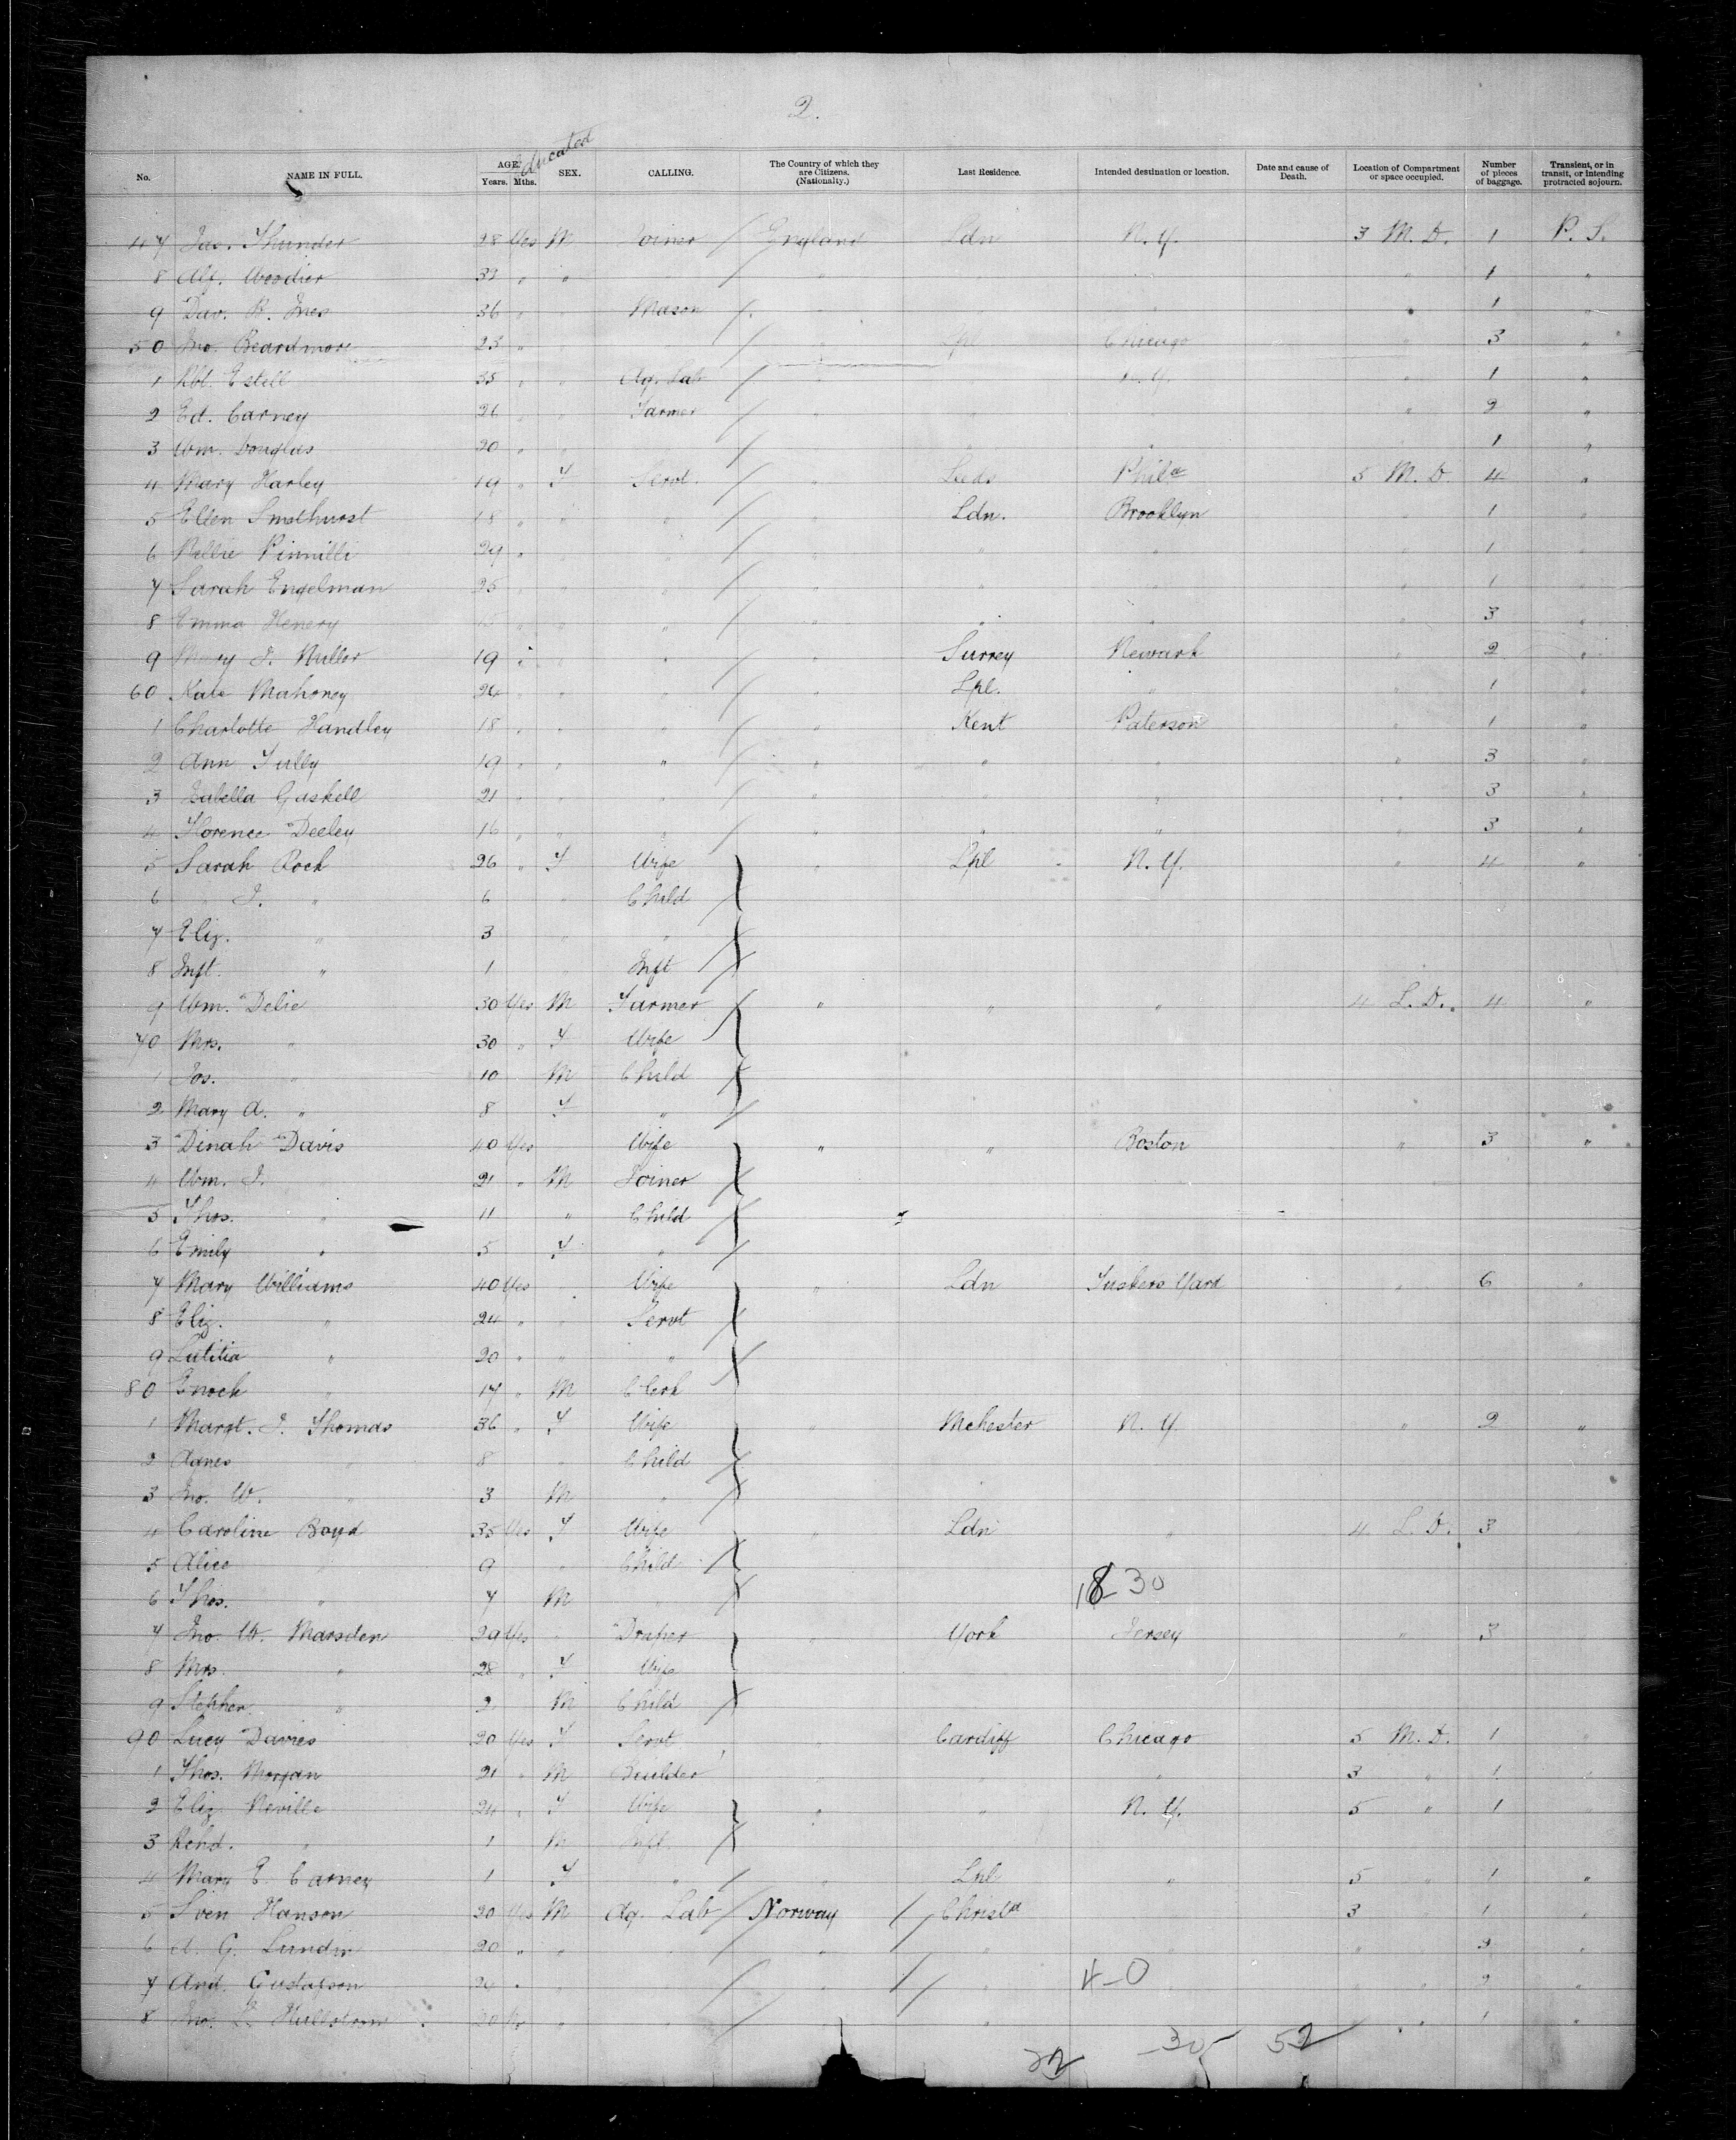 2.
Educated
No. NAME IN FULL. AGE. Years. Mths. SEX. CALLING. The Country of which they are Citizens. (Nationalty.) Last Residence. Intended destination or location. Date and cause of Death. Location of Compartment or space occupied. Number of pieces of baggage. Transient, or in transit, or intending protracted sojourn.
47 Jas. Thunder 28 Yes M Joiner / England Ldn N.Y. 3 M. D. 1 P. S.
8 Alf. 39 " " / " " 1 "
9 Dav. B. 36 " Mason / " 1 "
50 Jno. Beardmore 23 " / " Lpl Chicago " 3 "
1 Rbt. Estell 35 " " Ag. Lab / " N.Y. 1 "
2 Ed. Carney 26 " Farmer / " " 2 "
3 Wm. Douglas 20 " " / " " 1 "
4 Mary Harley 19 " F Servt. / " Leeds Phila 5 M. D. 4 "
5 Ellen Smethurst 18 " " " / " Ldn. Brooklyn 1 "
6 Nellie Pinnilli 24 " " / " " " 1 "
7 Sarah Engelman 25 " " / " " " " 1 "
8 Emma Henery " " " / " " " " 3 "
9 Mary J. Miller 19 " " / " Surrey Newark " 2 "
60 Kate Mahoney 26 " " " / " Lpl. " " 1 "
1 Charlotte Handley 18 " " " / " Kent Paterson " 1 "
2 Ann Tully 19 " " " / " " " " 3 "
3 Isabella Gaskell 21 " " " / " " " " 3 "
4 Florence Deeley 16 " " " / " " " " 3 "
5 Sarah Rock 26 " F Wife " Lpl N.Y. " 4 "
6 " J. " 6 " Child /
7 Eliz. " 3 " " /
8 Inft. " 1 " Inft /
9 Wm. Delie 30 Yes M Farmer / " " " 4 L. D. 4 "
70 Mrs. " 30 " F Wife /
1 Jos. " 10 M Child /
2 Mary A. " 8 F " /
3 Dinah Davis 40 Yes Wife " " Boston " 3 "
4 Wm. J. 21 " M Joiner /
5 Thos. " 11 " Child /
6 Emily " 5 F " /
7 Mary Williams 40 Yes " Wife " Ldn " 6 "
8 Eliz. " 24 " " Servt /
9 Letitia " 20 " " " /
80 Enoch " 17 " M Clerk
1 Margt. J. Thomas 36 " F Wife " Mchester N.Y. " 2 "
2 Agnes " 8 " Child /
3 Jno. W. " 3 M " /
4 Caroline Boyd 35 Yes F Wife " Ldn " 4 L. D. 3
5 Alice " 9 " Child /
6 Thos. " 7 M " /
30
7 Jno. W. Marsden 29 Yes " Draper " York Jersey " 3
8 Mrs. " 28 " F Wife
9 Stephen " 2 M Child /
90 Lucy Davies 20 Yes F Servt Cardiff Chicago 5 M. D. 1 "
1 Thos. Morgan 21 " M Builder " " " 3 " 1 "
2 Eliz. Neville 24 " F Wife " " N.Y. 5 " 1 "
3 Rchd. " 1 M Inft. /
4 Mary E. Carney 1 F " / " Lpl " 5 " 1 "
5 Sven Hanson 20 Yes M Ag. Lab / Norway / / Christa 3 1 "
6 A. G. 20 " " " " " "
7 And. Gustafson 20 " " / " / / " " 2 "
4-0
8 Jno. 20 " / " 1 "
22 30 52